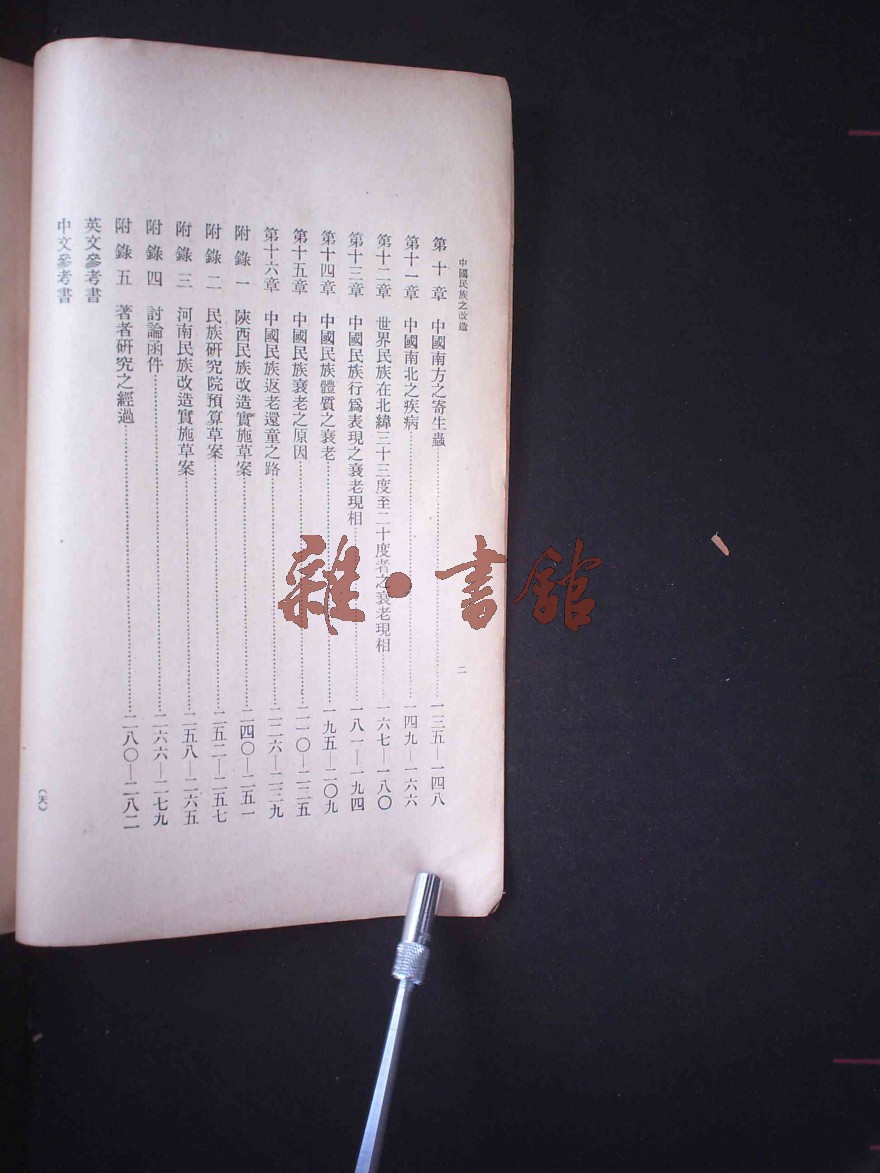 中國民族之改造
二
第十章　中國南方之寄生蟲……一三五—一四八
第十一章　中國南北之疾病……一四九—一六六
第十二章　世界民族在北緯三十三度至二十度者之衰老現相……一六七—一八〇
第十三章　中國民族行爲表現之衰老現相……一八一—一九四
第十四章　中國民族體質之衰老……一九五—二〇九
第十五章　中國民族衰老之原因……二一〇—二二五
第十六章　中國民族返老還童之路……二二六—二三九
附錄一　陝西民族改造實施草案……二四〇—二五一
附錄二　民族研究院預算草案……二五二—二五七
附錄三　河南民族改造實施草案……二五八—二六五
附錄四　討論函件……二六六—二七九
附錄五　著者研究之經過……二八〇—二八二
英文參考書
中文參考書
(天)
雜·書館